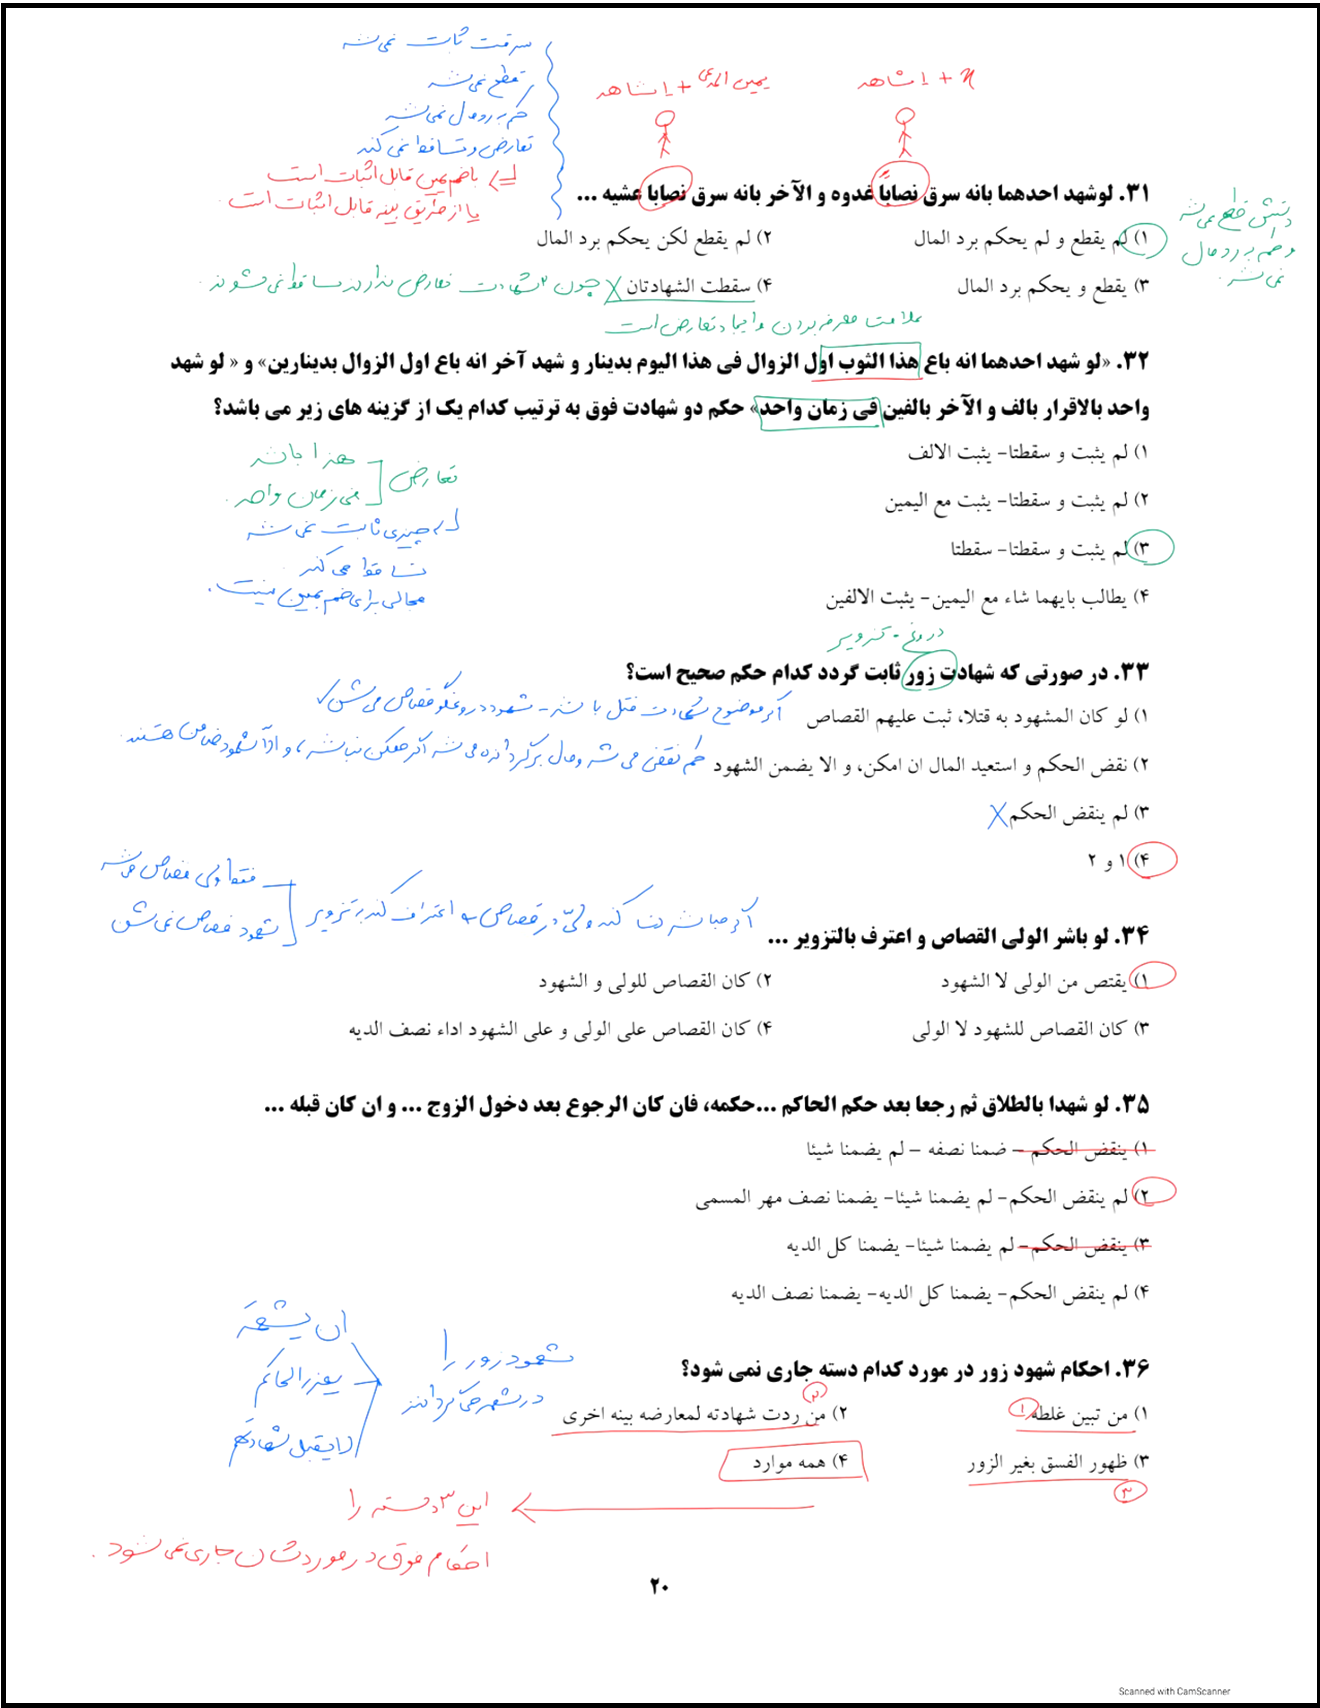 سرقت ثابت نمی‌شه
قطع نمی‌شه
حکم به رد مال نمی‌شه
تعارض و تساقط نمی‌کند
با ضم یمین قابل اثبات است
یا از طریق بینه قابل اثبات است.
یمین المدعی + ۱ شاهد
۱ شاهد +
۳۱. لوشهد احدهما بانه سرق نصاباً غدوه و الآخر بانه سرق نصابا عشیه ...
دستش قطع نمی‌شه
و حکم به رد مال
نمی‌شه.
۱) لم یقطع و لم یحکم برد المال
۲) لم یقطع لکن یحکم برد المال
۳) یقطع و یحکم برد المال
۴) سقطت الشهادتان
چون ۲ شهادت تعارض ندارند ساقط نمی‌شوند.
علامت معرفه بودن و ایجاد تعارض است
۳۲. «لو شهد احدهما انه باع هذا الثوب اول الزوال فی هذا الیوم بدینار و شهد آخر انه باع اول الزوال بدینارین» و « لو شهد
واحد بالاقرار بالف و الآخر بالفین فی زمان واحد» حکم دو شهادت فوق به ترتیب کدام یک از گزینه های زیر می باشد؟
۱) لم یثبت و سقطتا- یثبت الالف
۲) لم یثبت و سقطتا- یثبت مع الیمین
۳) لم یثبت و سقطتا- سقطتا
۴) یطالب بایهما شاء مع الیمین- یثبت الالفین
تعارض
هذا باشه
فی زمان واحد.
چیزی ثابت نمی‌شه
تساقط می‌کند
مجالی برای ضم یمین نیست.
دروغ - تزویر
۳۳. در صورتی که شهادت زور ثابت گردد کدام حکم صحیح است؟
۱) لو کان المشهود به قتلا، ثبت علیهم القصاص
اگر موضوع شهادت قتل باشه - شهود دروغگو قصاص می‌شن
۲) نقض الحکم و استعید المال ان امکن، و الا یضمن الشهود
حکم نقض می‌شه و مال برگردانده می‌شه اگر ممکن نباشه، و الا شهود ضامن هستند.
۳) لم ینقض الحکم
۴) ۱ و ۲
اگر مباشرت کند ولیّ در قصاص و اعتراف کند به تزویر
فقط ولی قصاص می‌شه
شهود قصاص نمی‌شن
۳۴. لو باشر الولی القصاص و اعترف بالتزویر ...
۱) یقتص من الولی لا الشهود
۲) کان القصاص للولی و الشهود
۳) کان القصاص للشهود لا الولی
۴) کان القصاص علی الولی و علی الشهود اداء نصف الدیه
۳۵. لو شهدا بالطلاق ثم رجعا بعد حکم الحاکم ...حکمه، فان کان الرجوع بعد دخول الزوج ... و ان کان قبله ...
۱) ینقض الحکم – ضمنا نصفه – لم یضمنا شیئا
۲) لم ینقض الحکم- لم یضمنا شیئا- یضمنا نصف مهر المسمی
۳) ینقض الحکم- لم یضمنا شیئا- یضمنا کل الدیه
۴) لم ینقض الحکم- یضمنا کل الدیه- یضمنا نصف الدیه
۳۶. احکام شهود زور در مورد کدام دسته جاری نمی شود؟
شهود زور را
در شهر می‌گردانند
ان یشهّر
یعزر الحاکم
لا یقبل شهادتهم
۱) من تبین غلطه
۱
۲) من ردت شهادته لمعارضه بینه اخری
۲
۳) ظهور الفسق بغیر الزور
۳
۴) همه موارد
این ۳ دسته را
احکام فوق در موردشان جاری نمی‌شود.
۲۰
Scanned with CamScanner